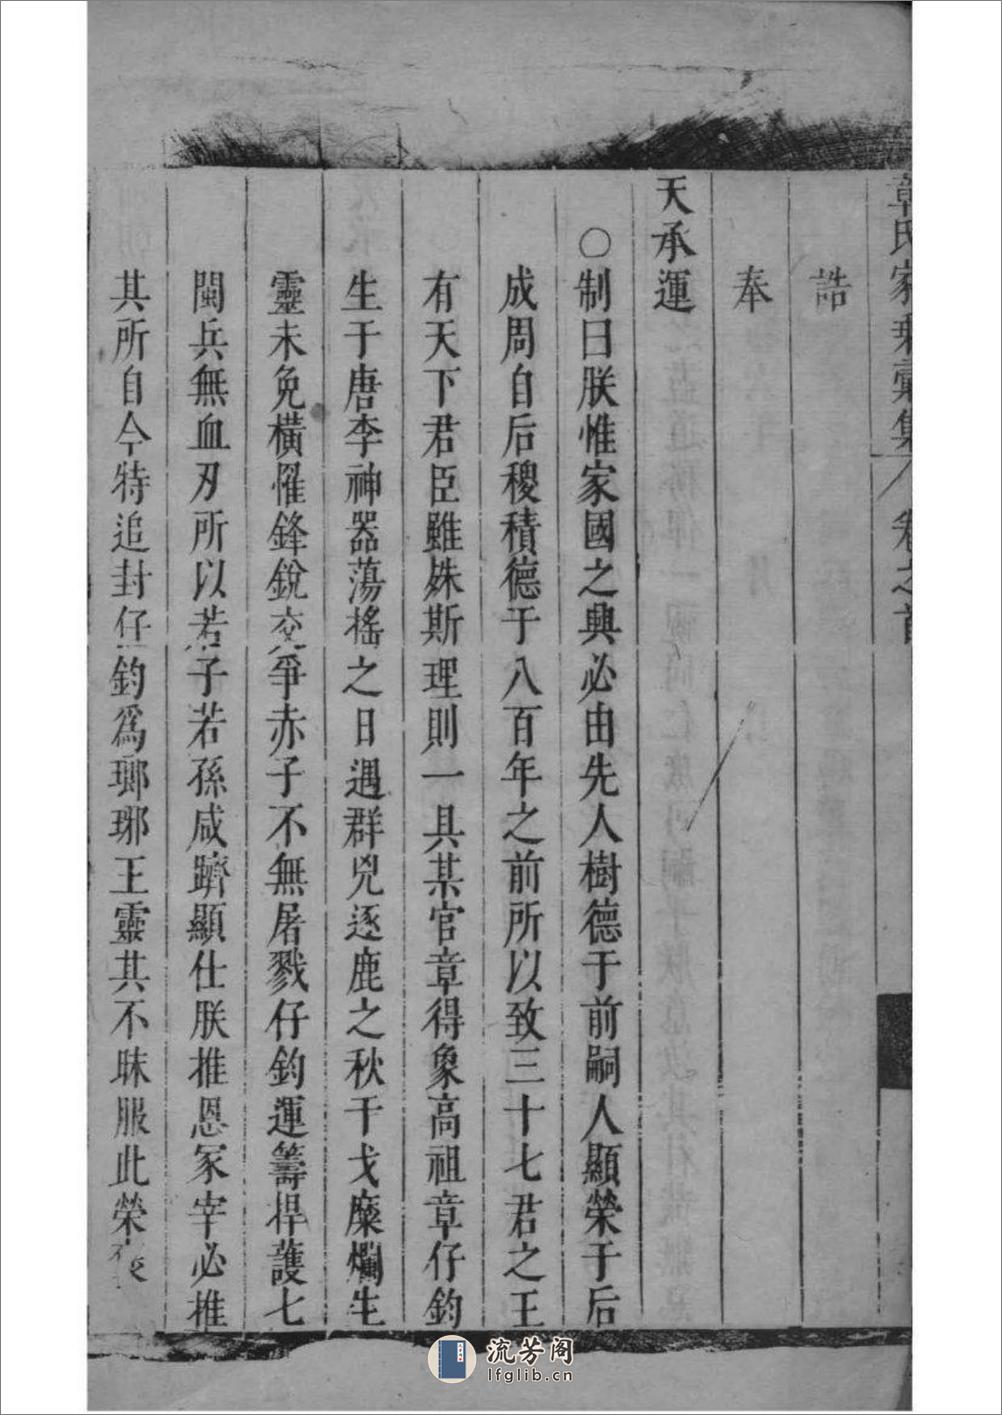 章氏家乘彙集 卷之首
誥
奉
天承運
○制曰朕惟家國之興必由先人樹德于前嗣人顯榮于后
成周自后稷積德于八百年之前所以致三十七君之王
有天下君臣雖姝斯理則一具某官章得象高祖章仔鈞
生于唐李神器蕩搖之日遇群兇逐鹿之秋干戈糜爛生
靈未免橫罹鋒銳交爭赤子不無屠戮仔鈞運籌捍護七
閩兵無血刃所以若子若孫咸躋顯仕朕推恩冢宰必推
其所自今特追封仔鈞爲瑯琊王靈其不昧服此榮
流芳阁
lfglib.cn